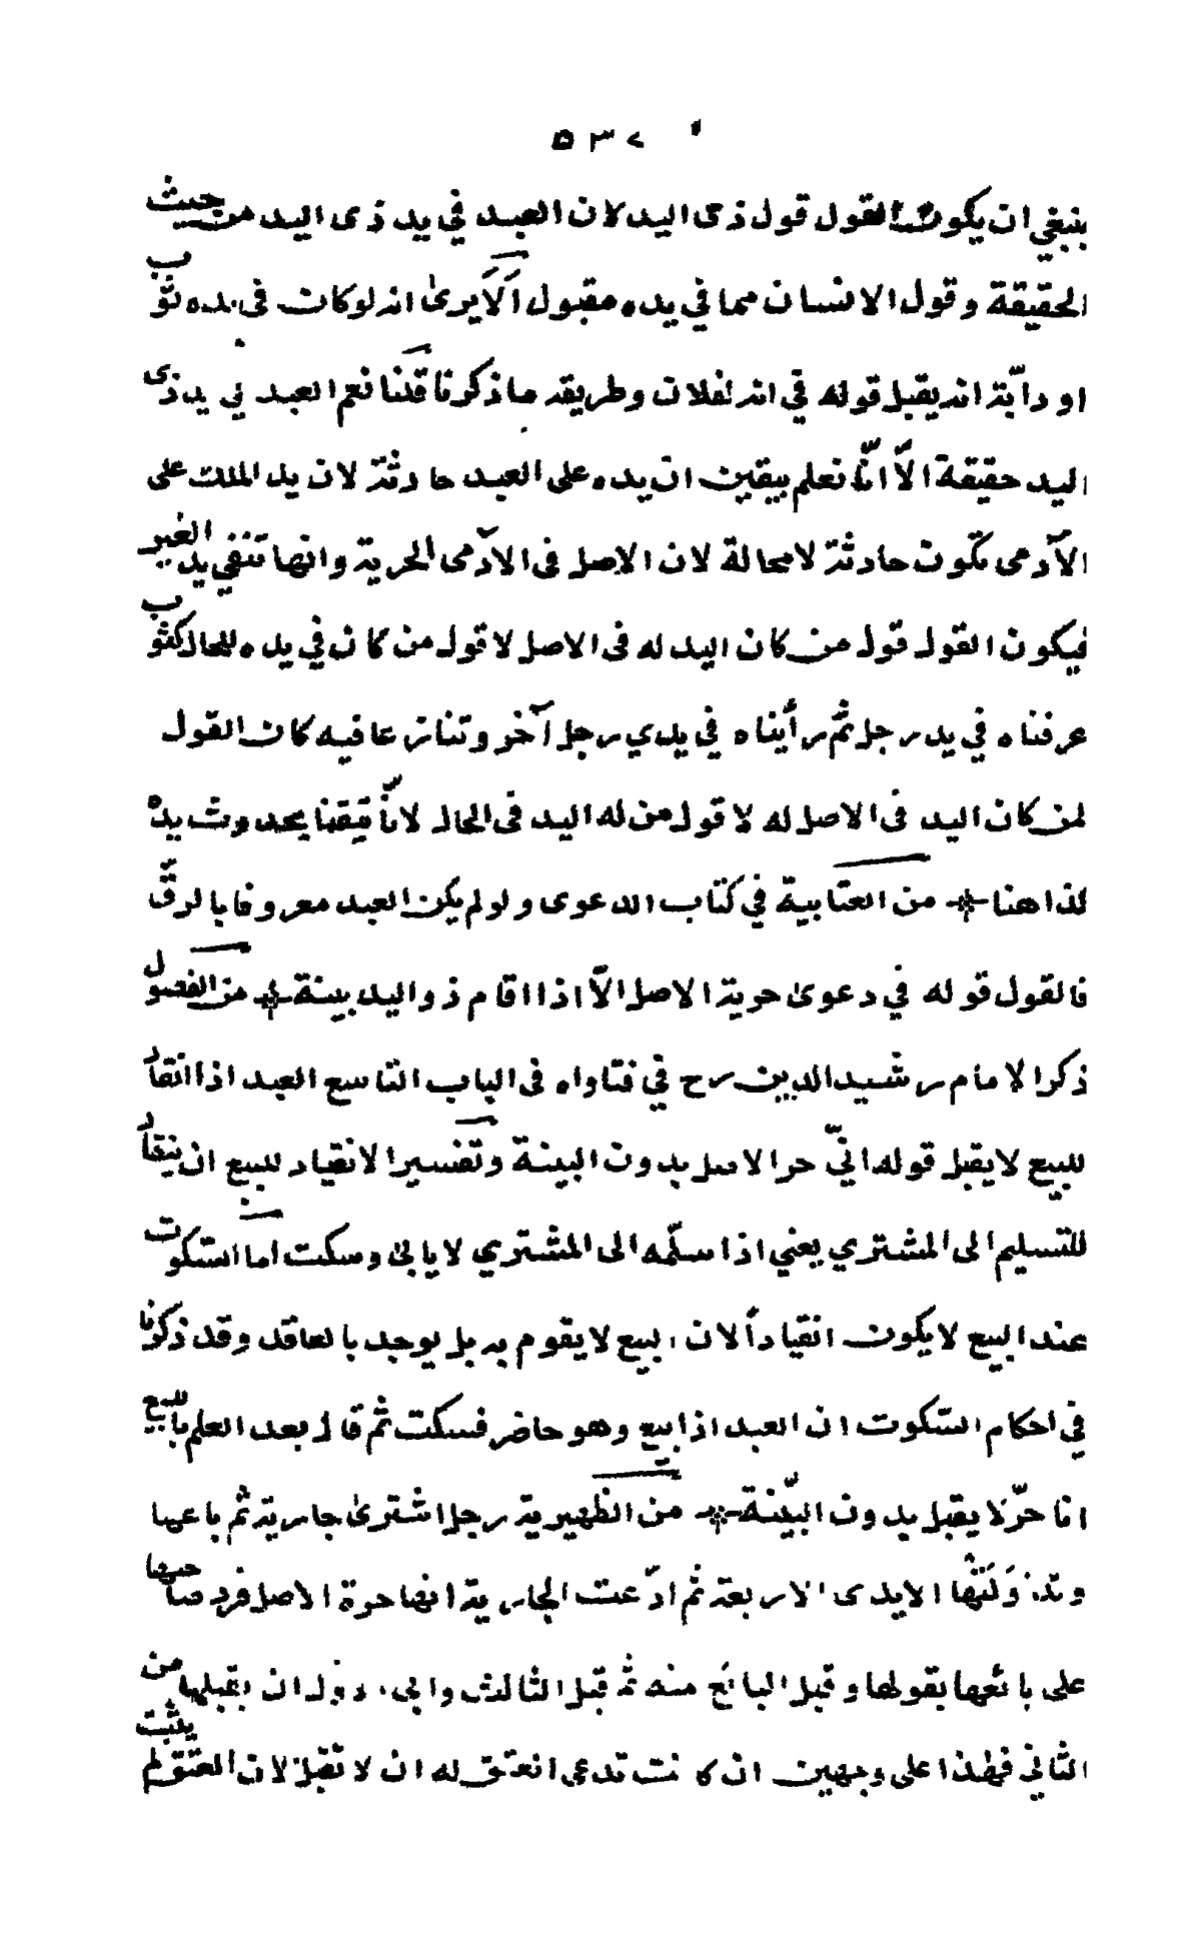 ٥٣٧
ينبغي ان يكون القول قول ذى اليد لان العبد في يد ذى اليد من حيث
الحقيقة وقول الانسان مما في يده مقبول ألَا يرىٰ انه لوكان فى يده ثوب
او دابّة انه يقبل قوله في انه لفلان وطريقه ما ذكرنا قلنا نعم العبد في يد ذى
اليد حقيقة الّا انّا نعلم بيقين ان يده على العبد حادثة لان يد الملك على
الآدمى تكون حادثة لامحالة لان الاصل فى الآدمى الحرية وانها تنفي يد الغير
فيكون القول قول من كان اليد له فى الاصل لا قول من كان في يده للحال كثوب
عرفناه في يد رجل ثمّ رأيناه في يدي رجل آخر وتنازعا فيه كان القول
لمن كان اليد فى الاصل له لا قول من له اليد فى الحال لانّا تيقنا بحدوث يده
كذا هنا من العتابية في كتاب الدعوى ولو لم يكن العبد معروفا بالرقّ
فالقول قوله في دعوىٰ حرية الاصل الّا اذا اقام ذو اليد بينة من الفصول
ذكر الامام رشيد الدين رح في فتاواه فى الباب التاسع العبد اذا انقاد
للبيع لا يقبل قوله انيّ حر الاصل بدون البينة وتفسير الانقياد للبيع ان ينقاد
للتسليم الى المشتري يعني اذا سلّمه الى المشتري لا يابىٰ وسكت اما السّكوت
عند البيع لا يكون انقياداً لان البيع لا يقوم به بل يوجد بالعاقد وقد ذكرنا
في احكام السّكوت ان العبد اذا بيع وهو حاضر فسكت ثم قال بعد العلم بالبيع
انا حرّ لا يقبل بدون البيّنة من الظهيرية رجل اشترىٰ جارية ثم باعها
وتداوَلَتْها الايدى الاربعة ثم ادّعت الجارية انها حرة الاصل فرد صاحبها
على بائعها بقولها وقبل البائع منه ثم قبل الثالث وابى ان يقبلها من
الثاني فهذا على وجهين ان كانت تدعى العتق له ان لا تقبل لان العتق لم يثبت